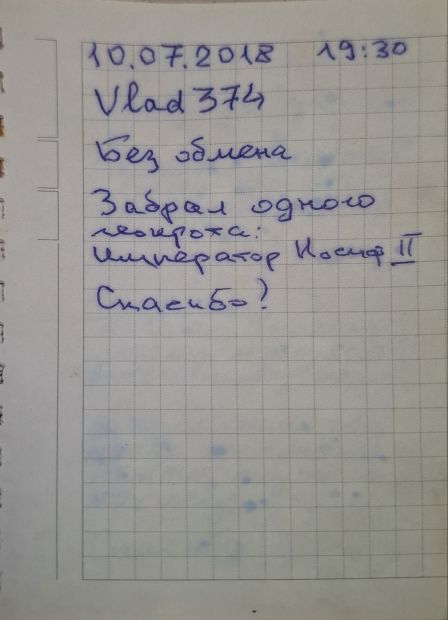 10.07.2018 19:30
Vlad374
Без обмена
Забрал одного
геокрота:
император Иосиф II
Спасибо!